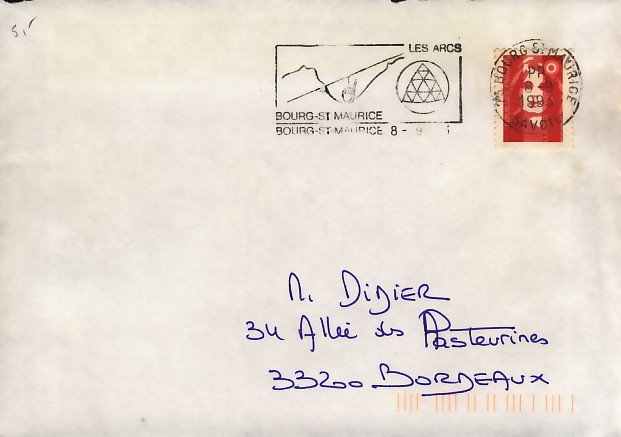 5,-
LES ARCS
BOURG-ST-MAURICE
BOURG-ST-MAURICE 8 - 9
BOURG ST MAURICE
PP
8 - 9
SAVOIE
M. DIDIER
34 Allée des Pasteurines
33200 BORDEAUX